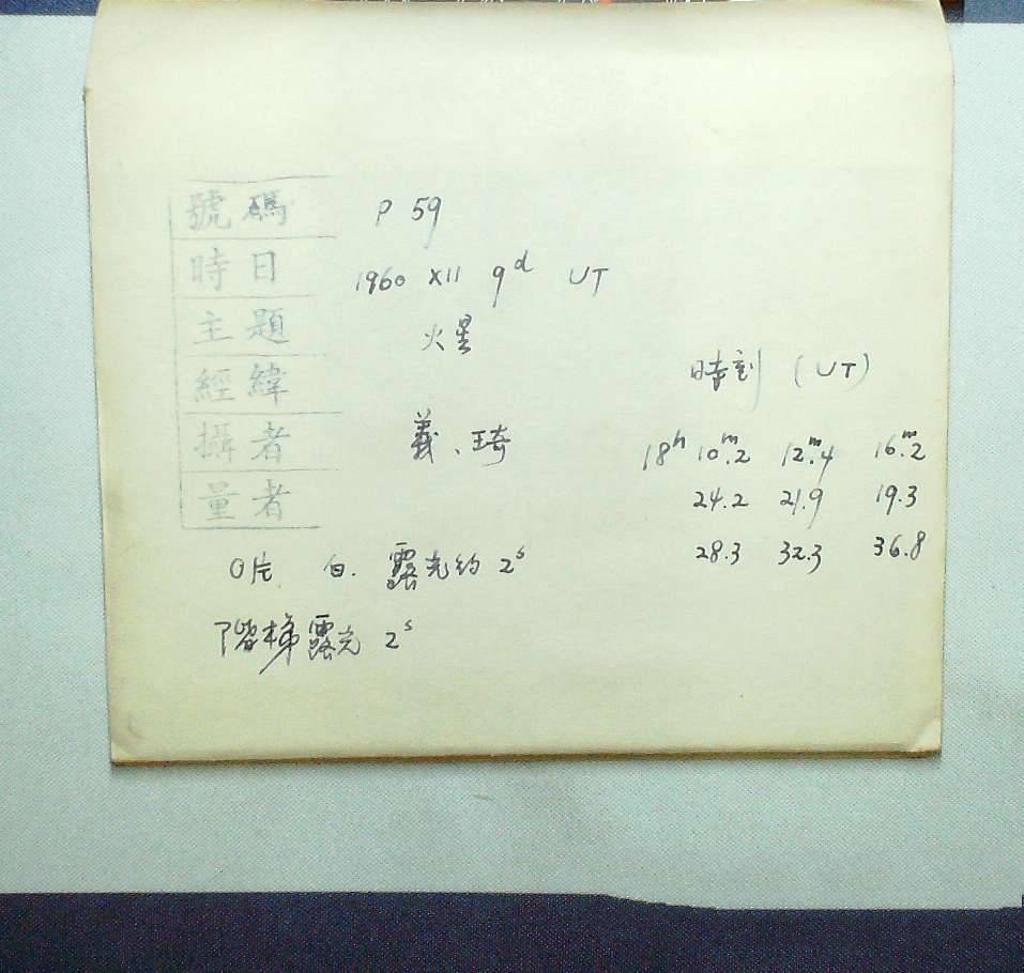 號碼 P 59
時日 1960 XII 9d UT
主題 火星
經緯
攝者 義、琦
量者
時刻 (UT)
18h 10m.2 12m.4 16m.2
24.2 21.9 19.3
28.3 32.3 36.8
O片 白. 露光約 2s
階梯露光 2s